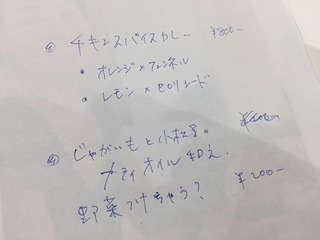 ② チキンスパイスカレー ¥800-
・オレンジ×フェンネル
・レモン×セロリシード
④ じゃがいもと小松菜×
オイル和え.
野菜つけちゃう? ¥200-